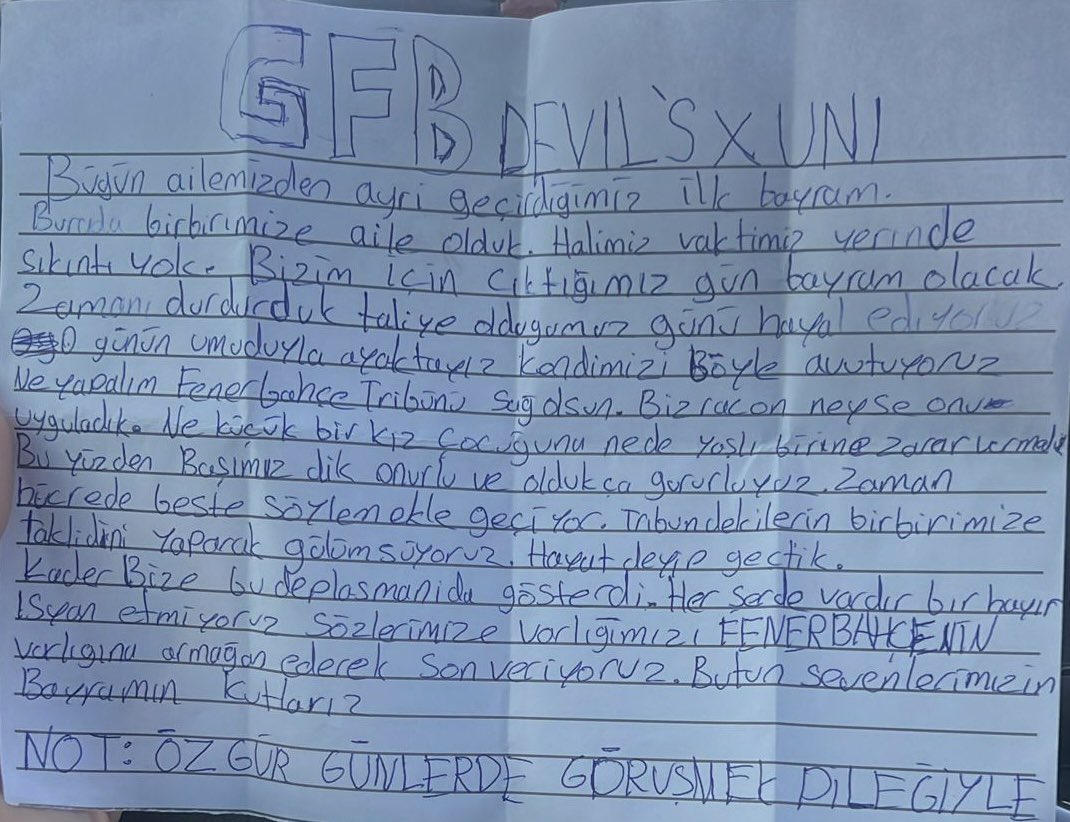 GFB DEVIL'S X UNI
Bügün ailemizden ayri geçirdiğimiz ilk bayram.
Burada birbirimize aile olduk. Halimiz vaktimiz yerinde
sıkıntı yok. Bizim için çıktığımız gün bayram olacak.
Zamanı durdurduk taliye olduğumuz günü hayal ediyoruz
O günün umuduyla ayaktayız kendimizi Böyle avutuyoruz
Ne yapalım Fenerbahçe Tribünü sağ olsun. Biz racon neyse onu
uyguladık. Ne küçük bir kız çocuğuna nede yaşlı birine zarar vermedik
Bu yüzden Başımız dik onurlu ve oldukça gururluyuz. Zaman
hücrede beste söylemekle geçiyor. Tribundekilerin birbirimize
taklidini yaparak gülümsüyoruz. Hayat deyip geçtik.
Kader Bize bu deplasmanida gösterdi. Her şerde vardır bir hayır
isyan etmiyoruz sözlerimize varlığımızı FENERBAHÇENİN
varlıgına armağan ederek son veriyoruz. Butun sevenlerimizin
Bayramın kutlarız
NOT: ÖZGÜR GÜNLERDE GÖRÜŞMEK DİLEĞİYLE